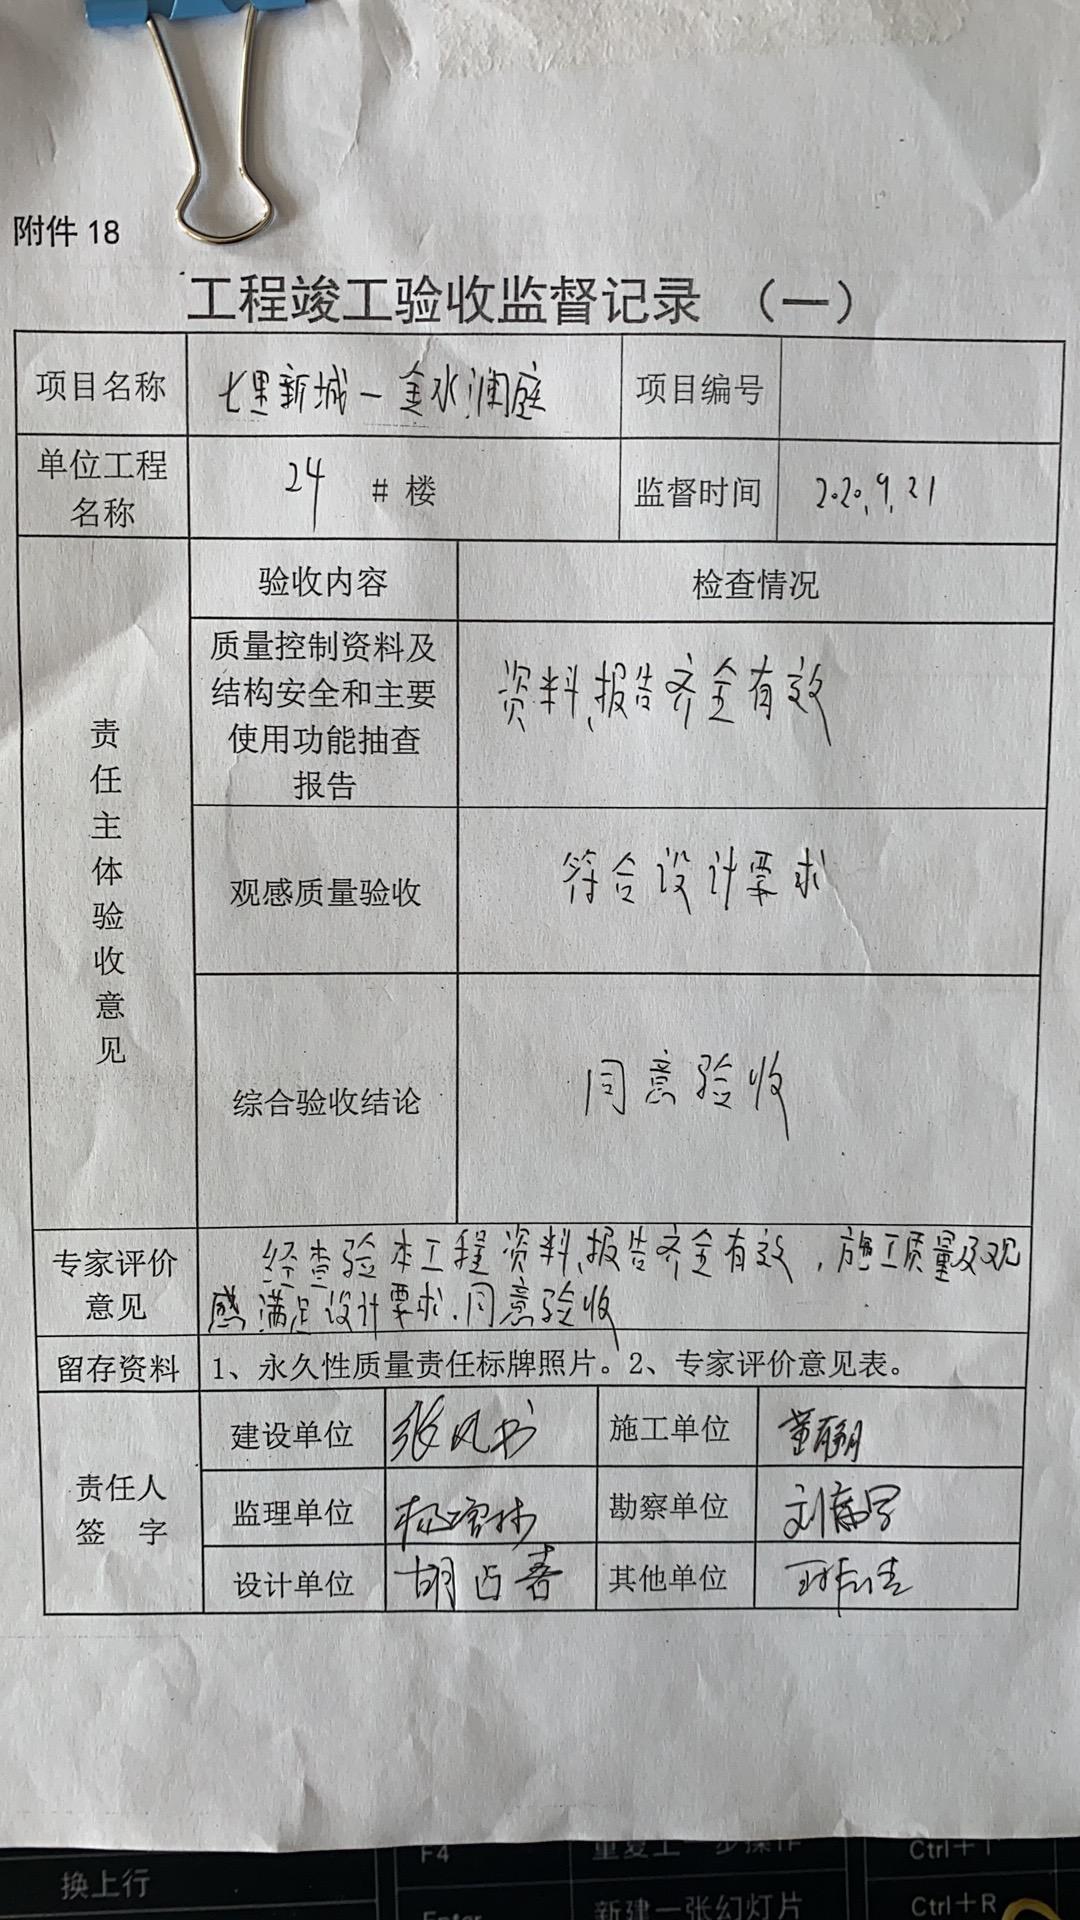 附件 18
工程竣工验收监督记录 （一）
项目名称 七里新城一金水澜庭 项目编号
单位工程名称 24 # 楼 监督时间 2020.9.21
责任主体验收意见
验收内容 检查情况
质量控制资料及
结构安全和主要
使用功能抽查
报告
资料、报告齐全有效
观感质量验收 符合设计要求
综合验收结论 同意验收
专家评价
意见
经查验本工程资料、报告齐全有效，施工质量及观
感满足设计要求、同意验收
留存资料 1、永久性质量责任标牌照片。2、专家评价意见表。
责任人
签 字
建设单位 施工单位
监理单位 勘察单位
设计单位 胡占春 其他单位
换上行
F4
Ctrl+R
新建一张幻灯片